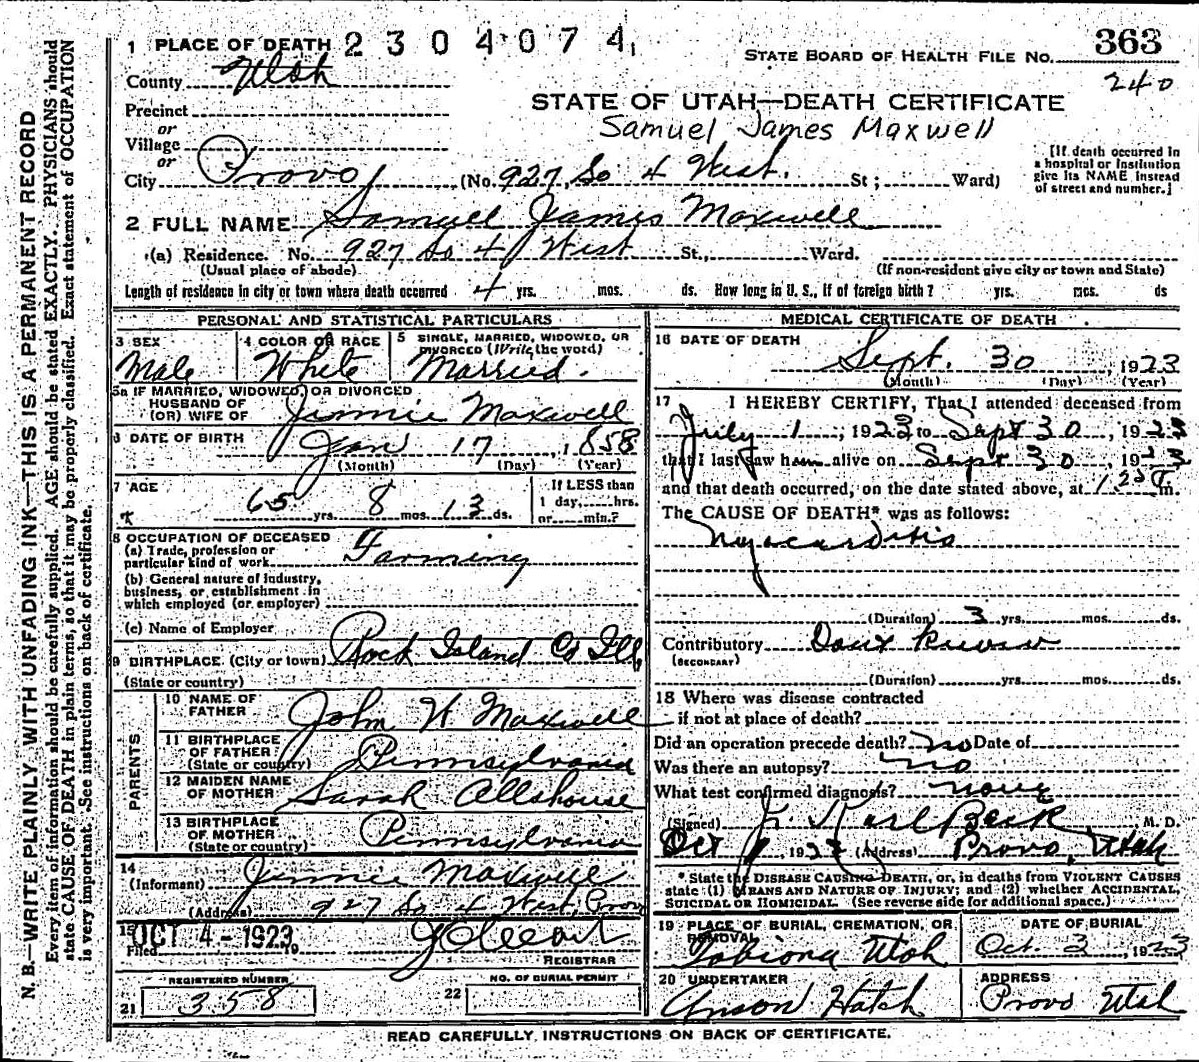 1 PLACE OF DEATH 2 3 0 4 0 7 4
STATE BOARD OF HEALTH FILE NO. 363
240
County Utah
STATE OF UTAH—DEATH CERTIFICATE
Samuel James Maxwell
Precinct
or
Village
or
City Provo (No. 927 So 4 West. St; Ward)
[If death occurred in
a hospital or institution
give its NAME instead
of street and number.]
2 FULL NAME Samuel James Maxwell
(a) Residence. No. 927 So 4 West St., Ward.
(Usual place of abode) (If non-resident give city or town and State)
Length of residence in city or town where death occurred 4 yrs. mos. ds. How long in U. S., if of foreign birth? yrs. mos. ds
PERSONAL AND STATISTICAL PARTICULARS
3 SEX Male
4 COLOR OR RACE White
5 SINGLE, MARRIED, WIDOWED, OR
DIVORCED (Write the word)
Married.
5a IF MARRIED, WIDOWED, OR DIVORCED
HUSBAND OF
(OR) WIFE OF Jinnie Maxwell
6 DATE OF BIRTH Jan 17, 1858
(Month) (Day) (Year)
7 AGE 65 yrs. 8 mos. 13 ds.
If LESS than
1 day, hrs.
or min.?
8 OCCUPATION OF DECEASED
(a) Trade, profession or
particular kind of work Farming
(b) General nature of industry,
business, or establishment in
which employed (or employer)
(c) Name of Employer
9 BIRTHPLACE (City or town) Rock Island Co Ill.
(State or country)
PARENTS
10 NAME OF
FATHER John W Maxwell
11 BIRTHPLACE
OF FATHER
(State or country) Pennsylvania
12 MAIDEN NAME
OF MOTHER Sarah Allshouse
13 BIRTHPLACE
OF MOTHER
(State or country) Pennsylvania
14
(Informant) Jinnie Maxwell
(Address) 927 So 4 West, Provo
15
Filed OCT 4 - 1923
REGISTRAR
REGISTERED NUMBER
21 358
NO. OF BURIAL PERMIT
22
MEDICAL CERTIFICATE OF DEATH
16 DATE OF DEATH
Sept. 30, 1923
(Month) (Day) (Year)
17 I HEREBY CERTIFY, That I attended deceased from
July 1, 1923 to Sept 30, 1923
that I last saw him alive on Sept 30, 1923
and that death occurred, on the date stated above, at m.
The CAUSE OF DEATH* was as follows:
Myocarditis
(Duration) 3 yrs. mos. ds.
Contributory
(SECONDARY)
(Duration) yrs. mos. ds.
18 Where was disease contracted
if not at place of death?
Did an operation precede death? no Date of
Was there an autopsy? no
What test confirmed diagnosis? none
(Signed) J. Karl Beck M. D.
Oct 1923 (Address) Provo, Utah
*State the DISEASE CAUSING DEATH, or, in deaths from VIOLENT CAUSES
state (1) MEANS AND NATURE OF INJURY; and (2) whether ACCIDENTAL,
SUICIDAL OR HOMICIDAL. (See reverse side for additional space.)
19 PLACE OF BURIAL, CREMATION, OR
REMOVAL
Tabiona Utah
DATE OF BURIAL
Oct. 3, 1923
20 UNDERTAKER
Anson Hatch
ADDRESS
Provo Utah
READ CAREFULLY, INSTRUCTIONS ON BACK OF CERTIFICATE.
N. B.—WRITE PLAINLY WITH UNFADING INK—THIS IS A PERMANENT RECORD
Every item of information should be carefully supplied. AGE should be stated EXACTLY. PHYSICIANS should
state CAUSE OF DEATH in plain terms, so that it may be properly classified. Exact statement of OCCUPATION
is very important. See instructions on back of certificate.